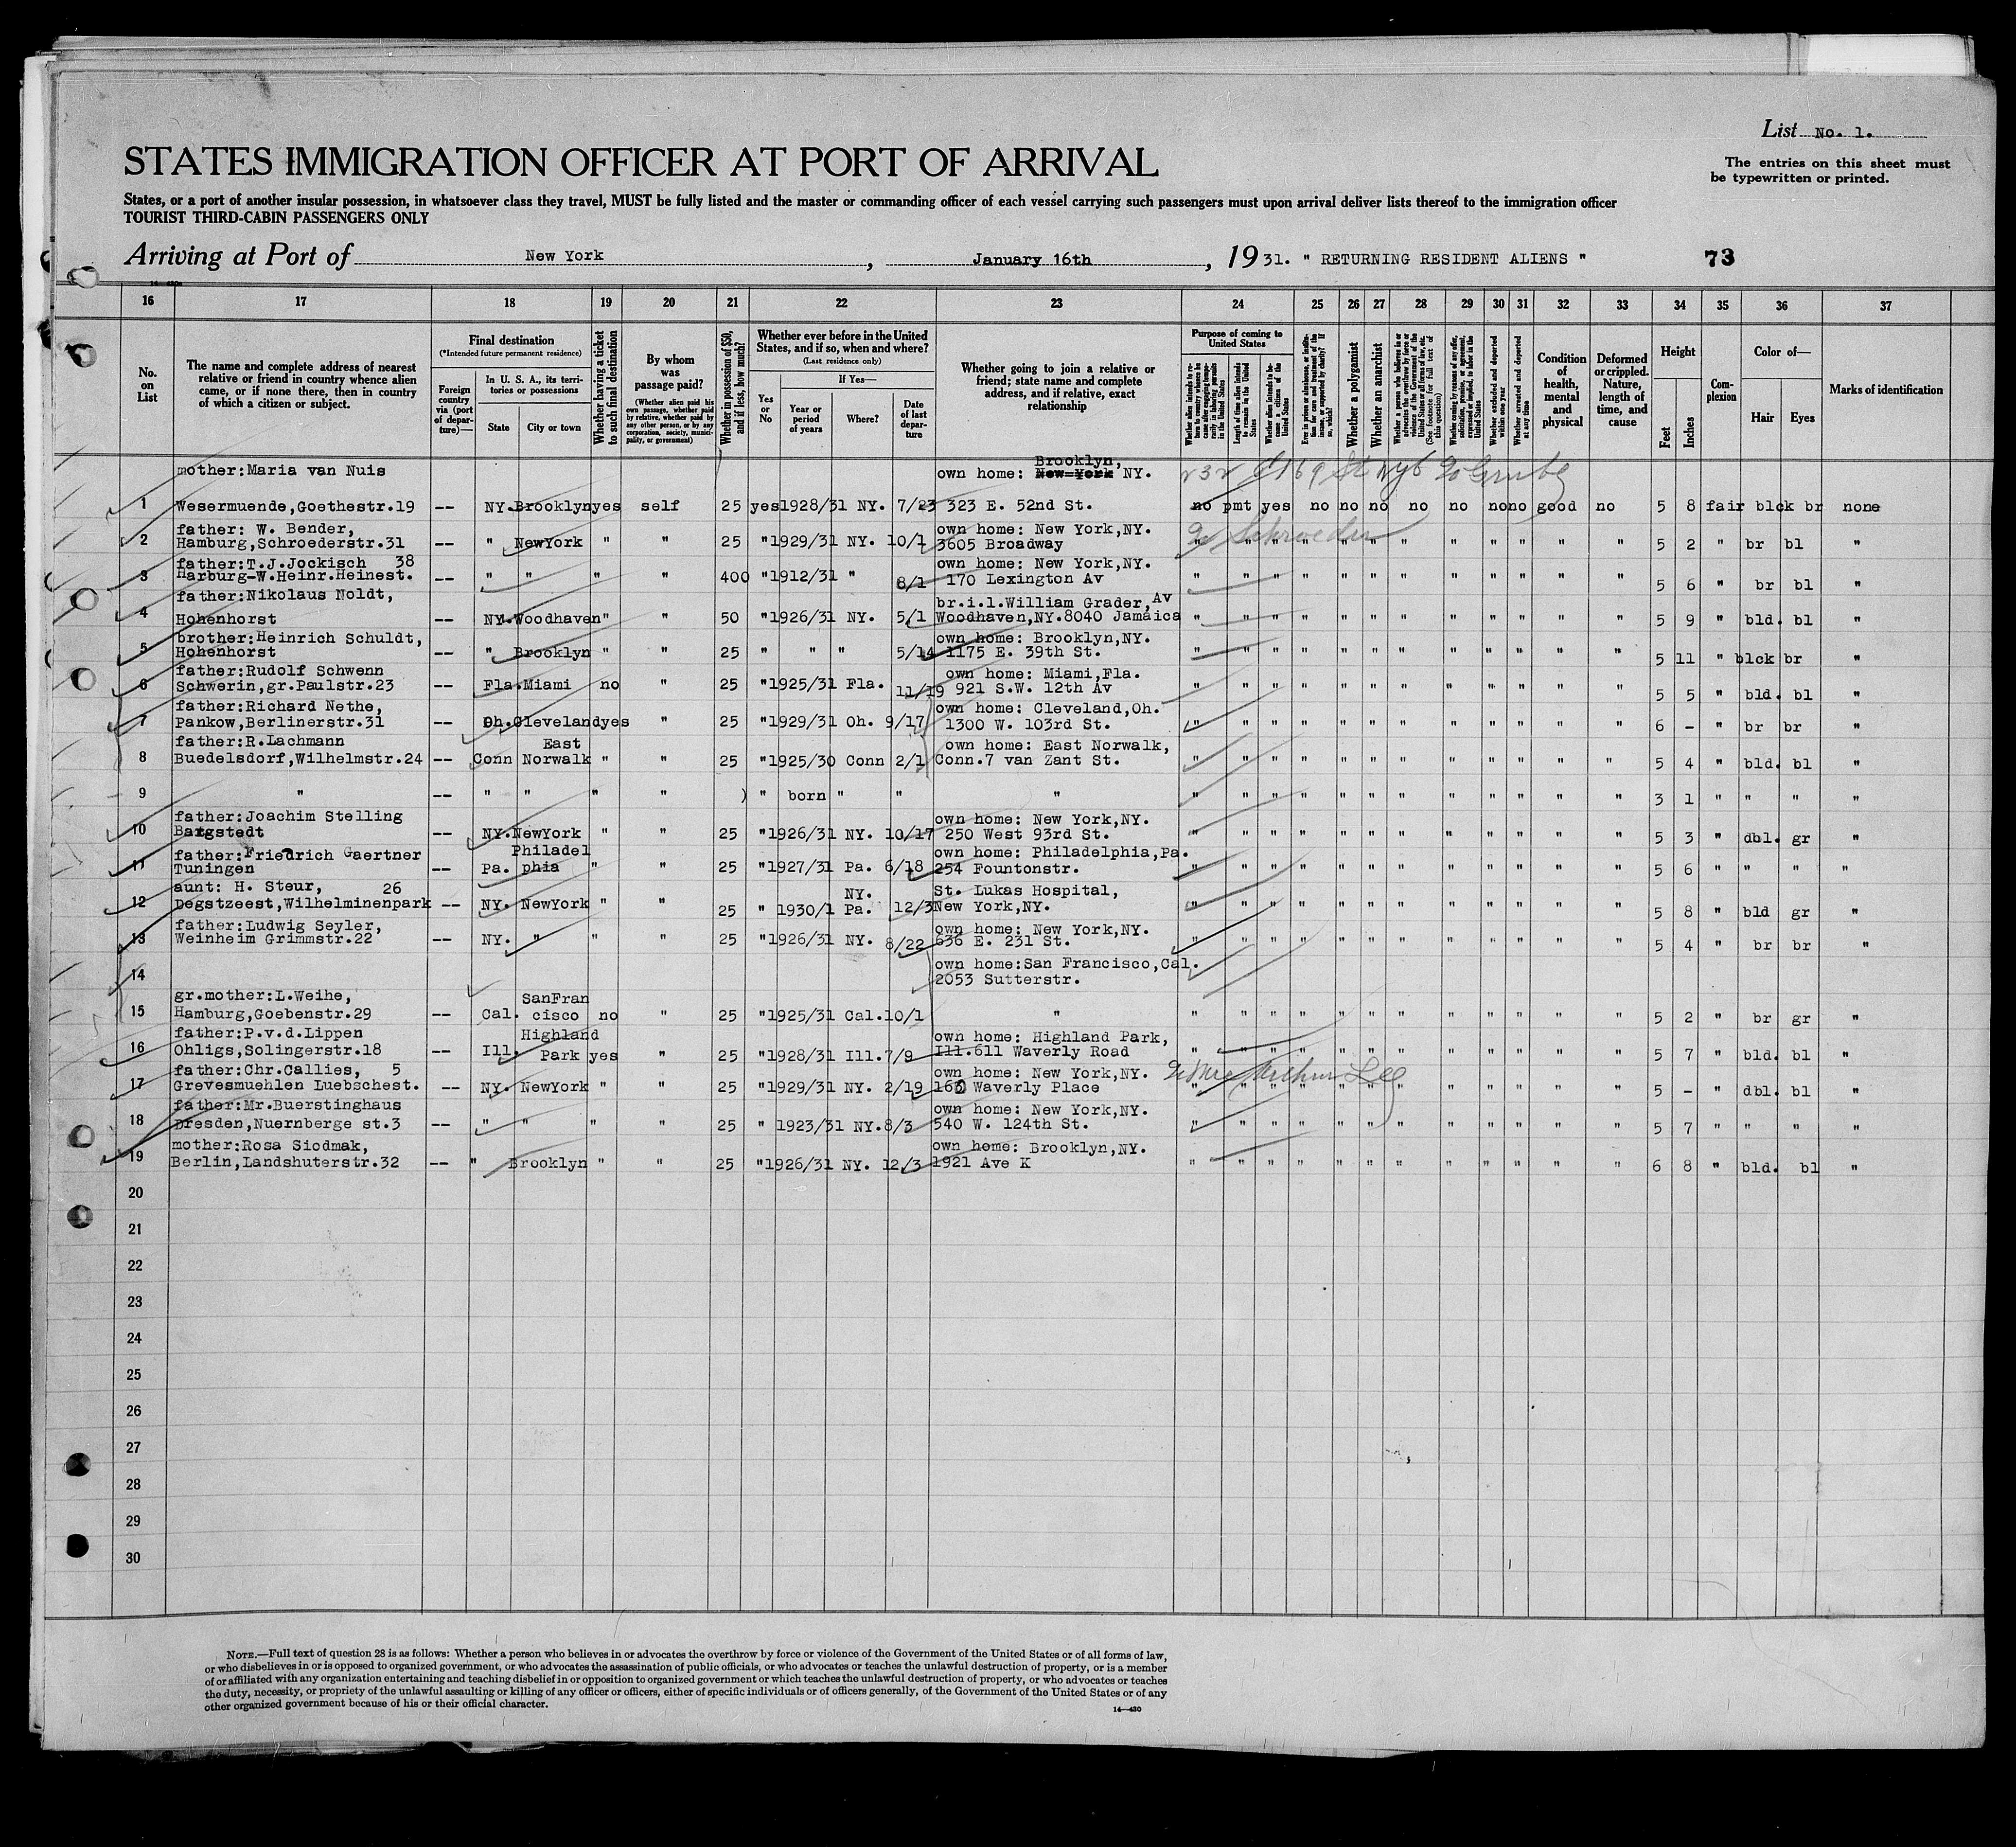 List No. 1.
STATES IMMIGRATION OFFICER AT PORT OF ARRIVAL
The entries on this sheet must
be typewritten or printed.
States, or a port of another insular possession, in whatsoever class they travel, MUST be fully listed and the master or commanding officer of each vessel carrying such passengers must upon arrival deliver lists thereof to the immigration officer
TOURIST THIRD-CABIN PASSENGERS ONLY
Arriving at Port of New York, January 16th, 19 31. " RETURNING RESIDENT ALIENS " 73
16 17 18 19 20 21 22 23 24 25 26 27 28 29 30 31 32 33 34 35 36 37
No. on List
The name and complete address of nearest relative or friend in country whence alien came, or if none there, then in country of which a citizen or subject.
Final destination
(*Intended future permanent residence)
Foreign country via (port of departure)—
In U. S. A., its territories or possessions
State City or town
Whether having a ticket to such final destination
By whom was passage paid?
(Whether alien paid his own passage, whether paid by relative, whether paid by any other person, or by any corporation, society, municipality, or government)
Whether in possession of $50, and if less, how much?
Whether ever before in the United States, and if so, when and where?
(Last residence only)
Yes or No
If Yes—
Year or period of years Where? Date of last departure
Whether going to join a relative or friend; state name and complete address, and if relative, exact relationship
Purpose of coming to United States
Whether alien intends to return to country whence he came after engaging temporarily in laboring pursuits in the United States
Length of time alien intends to remain in the United States
Whether alien intends to become a citizen of the United States
Whether a polygamist
Whether an anarchist
Whether excluded and deported within one year
Whether arrested and deported at any time
Condition of health, mental and physical
Deformed or crippled. Nature, length of time, and cause
Height
Feet Inches
Complexion
Color of—
Hair Eyes
Marks of identification
mother:Maria van Nuis own home: Brooklyn, New York NY.
1 Wesermuende,Goethestr.19 -- NY. Brooklyn yes self 25 yes 1928/31 NY. 7/23 323 E. 52nd St. no pmt yes no no no no no no no good no 5 8 fair blck br none
father: W. Bender, own home: New York,NY.
2 Hamburg,Schroederstr.31 -- " NewYork " " 25 " 1929/31 NY. 10/1 3605 Broadway " " " " " " " " " " " " 5 2 " br bl "
father:T.J.Jockisch 38 own home: New York,NY.
3 Harburg-W.Heinr.Heinest. -- " " " " 400 " 1912/31 " 8/1 170 Lexington Av " " " " " " " " " " " " 5 6 " br bl "
father:Nikolaus Noldt, br.i.l.William Grader, Av
4 Hohenhorst -- NY. Woodhaven " " 50 " 1926/31 NY. 5/1 Woodhaven,NY.8040 Jamaica " " " " " " " " " " " " 5 9 " bld. bl "
brother:Heinrich Schuldt, own home: Brooklyn,NY.
5 Hohenhorst -- " Brooklyn " " 25 " " " 5/14 1175 E. 39th St. " " " " " " " " " " " " 5 11 " blck br "
father:Rudolf Schwenn own home: Miami,Fla.
6 Schwerin,gr.Paulstr.23 -- Fla. Miami no " 25 " 1925/31 Fla. 11/19 921 S.W. 12th Av " " " " " " " " " " " " 5 5 " bld. bl "
father:Richard Nethe, own home: Cleveland,Oh.
7 Pankow,Berlinerstr.31 -- Oh. Cleveland yes " 25 " 1929/31 Oh. 9/17 1300 W. 103rd St. " " " " " " " " " " " " 6 - " br br "
father:R.Lachmann East own home: East Norwalk,
8 Buedelsdorf,Wilhelmstr.24 -- Conn Norwalk " " 25 " 1925/30 Conn 2/1 Conn.7 van Zant St. " " " " " " " " " " " " 5 4 " bld. bl "
9 " -- " " " " ) " born " " " " " " " " " " " " " " " " 3 1 " " " "
father:Joachim Stelling own home: New York,NY.
10 Bargstedt -- NY. NewYork " " 25 " 1926/31 NY. 10/17 250 West 93rd St. " " " " " " " " " " " " 5 3 " dbl. gr "
father:Friedrich Gaertner Philadel own home: Philadelphia,Pa.
11 Tuningen -- Pa. phia " " 25 " 1927/31 Pa. 6/18 254 Fountonstr. " " " " " " " " " " " " 5 6 " " " "
aunt: H. Steur, 26 NY. St. Lukas Hospital,
12 Degstzeest,Wilhelminenpark -- NY. NewYork " " 25 " 1930/1 Pa. 12/3 New York,NY. " " " " " " " " " " " " 5 8 " bld gr "
father:Ludwig Seyler, own home: New York,NY.
13 Weinheim Grimmstr.22 -- NY. " " " 25 " 1926/31 NY. 8/22 636 E. 231 St. " " " " " " " " " " " " 5 4 " br br "
own home:San Francisco,Cal.
14 2053 Sutterstr.
gr.mother:L.Weihe, SanFran
15 Hamburg,Goebenstr.29 -- Cal. cisco no " 25 " 1925/31 Cal. 10/1 " " " " " " " " " " " " " 5 2 " br gr "
father:P.v.d.Lippen Highland own home: Highland Park,
16 Ohligs,Solingerstr.18 -- Ill. Park yes " 25 " 1928/31 Ill. 7/9 Ill.611 Waverly Road " " " " " " " " " " " " 5 7 " bld. bl "
father:Chr.Callies, 5 own home: New York,NY.
17 Grevesmuehlen Luebschest. -- NY. NewYork " " 25 " 1929/31 NY. 2/19 Waverly Place " " " " " " " " " " " " 5 - " dbl. bl "
father:Mr.Buerstinghaus own home: New York,NY.
18 Dresden,Nuernberge st.3 -- " " " " 25 " 1923/31 NY. 8/3 540 W. 124th St. " " " " " " " " " " " " 5 7 " " " "
mother:Rosa Siodmak, own home: Brooklyn,NY.
19 Berlin,Landshuterstr.32 -- " Brooklyn " " 25 " 1926/31 NY. 12/3 1921 Ave K " " " " " " " " " " " " 6 8 " bld. bl "
20
21
22
23
24
25
26
27
28
29
30
NOTE.—Full text of question 28 is as follows: Whether a person who believes in or advocates the overthrow by force or violence of the Government of the United States or of all forms of law,
or who disbelieves in or is opposed to organized government, or who advocates the assassination of public officials, or who advocates or teaches the unlawful destruction of property, or is a member
of or affiliated with any organization entertaining and teaching disbelief in or opposition to organized government or which teaches the unlawful destruction of property, or who advocates or teaches
the duty, necessity, or propriety of the unlawful assaulting or killing of any officer or officers, either of specific individuals or of officers generally, of the Government of the United States or of any
other organized government because of his or their official character.
14—430